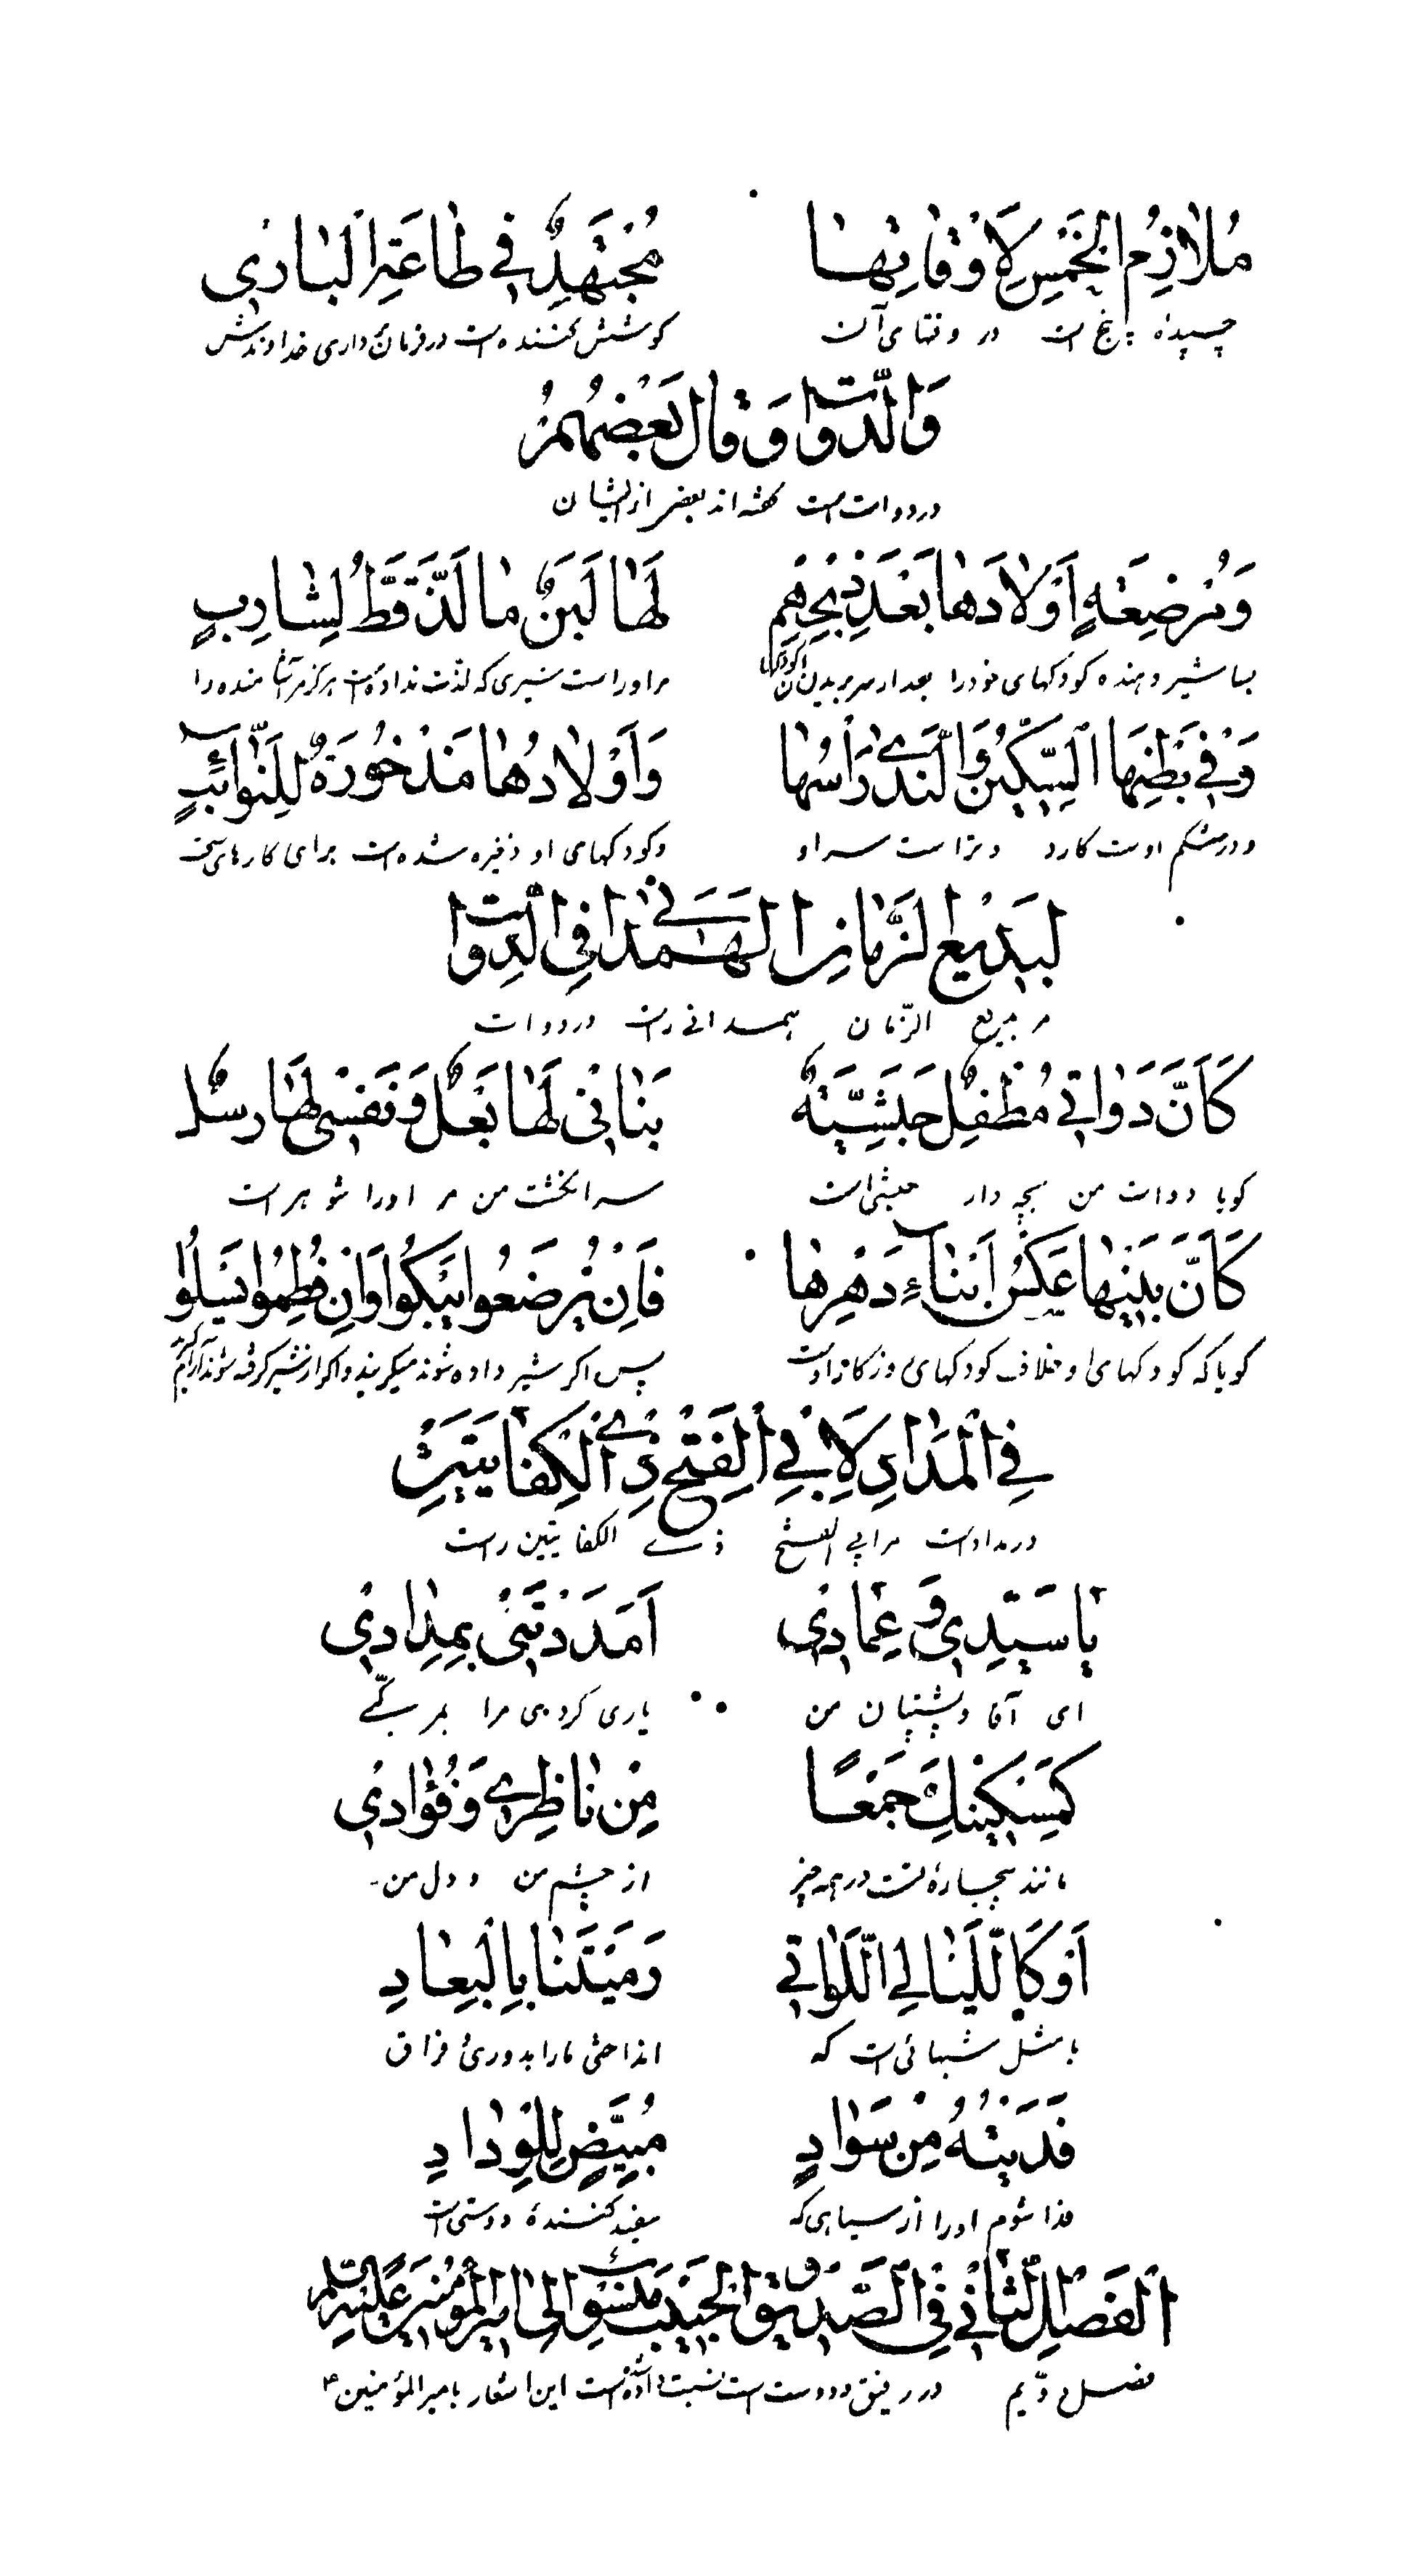 مُلازِمُ الخَمْسِ لِاَوْقاتِها مُجْتَهِدٌ فی طاعَةِ الباری
چسبیده پنج است در وقتهای آن کوشش کننده است در فرمان داری خداوندش
وَالدَّواتُ وَقالَ بَعْضُهُمْ
در دوات است گفته اند بعضی از ایشان
وَمُرْضِعَةٍ اَوْلادَها بَعْدَ ذَبْحِهِمْ لَها لَبَنٌ ما لَذَّ قَطُّ لِشارِبٍ
بسا شیر دهنده کودکهای خود را بعد از سر بریدن کودکها مر او راست شیری که لذت نداده است هرگز مر آشامنده را
وَفی بَطْنِهَا السِّکّینُ وَالثَّدْیُ رَأْسُها وَاَوْلادُها مَذْخُورَةٌ لِلنَّوائِبِ
و در شکم اوست کارد و پستان است سر او و کودکهای او ذخیره شده است برای کارهای سخت
لِبَدیعِ الزَّمانِ الهَمَدانی فِی الدَّواتِ
مر بدیع الزّمان همدانی راست در دوات
کَاَنَّ دَواتی مُطْفِلٌ حَبَشِیَّةٌ بَنانی لَها بَعْلٌ وَنَفْسی لَها رسل
گویا دوات من بچه دار حبشی است سر انگشت من مر او را شوهر است
کَاَنَّ بَنیها عَکْسُ اَبْناءِ دَهْرِها فَاِنْ یُرْضَعُوا یَبْکُوا وَاِنْ فُطِمُوا یَسْلُوا
گویا که کودکهای او خلاف کودکهای روزگار اوست پس اگر شیر داده شوند میگریند و اگر از شیر گرفته شوند آرام گیرند
فِی الْمِدادِ لِاَبِی الْفَتْحِ ذِی الْکِفایَتَیْنِ
در مداد است مر ابی الفتح ذی الکفایتین راست
یا سَیِّدی وَعِمادی اَمْدَدْتَنی بِمِدادی
ای آقا و پشتیبان من یاری کردی مرا بمرکّبی
کَمَسْکَنَیْکَ جَمْعًا مِنْ ناظِری وَفُؤادی
مانند از چشم من و دل من
اَوْ کَاللَّیالِی اللَّواتی رَمَیْتَنا بِالْبِعادِ
یا مثل شبهائی است که انداختی ما را بدوری فراق
فَدَیْتُهُ مِنْ سَوادٍ مُبَیِّضٍ لِلْوِدادِ
فدا شوم او را از سیاهی که سفید کننده دوستی است
اَلْفَصْلُ الثّانی فِی الصَّدیقِ وَالحَبیبِ مَنْسُوبٌ اِلی اَمیرِ الْمُؤْمِنینَ عَلَیْهِ السَّلام
فصل دوّیم در رفیق و دوست است نسبت داده شده است این اشعار بامیر المؤمنین ۴